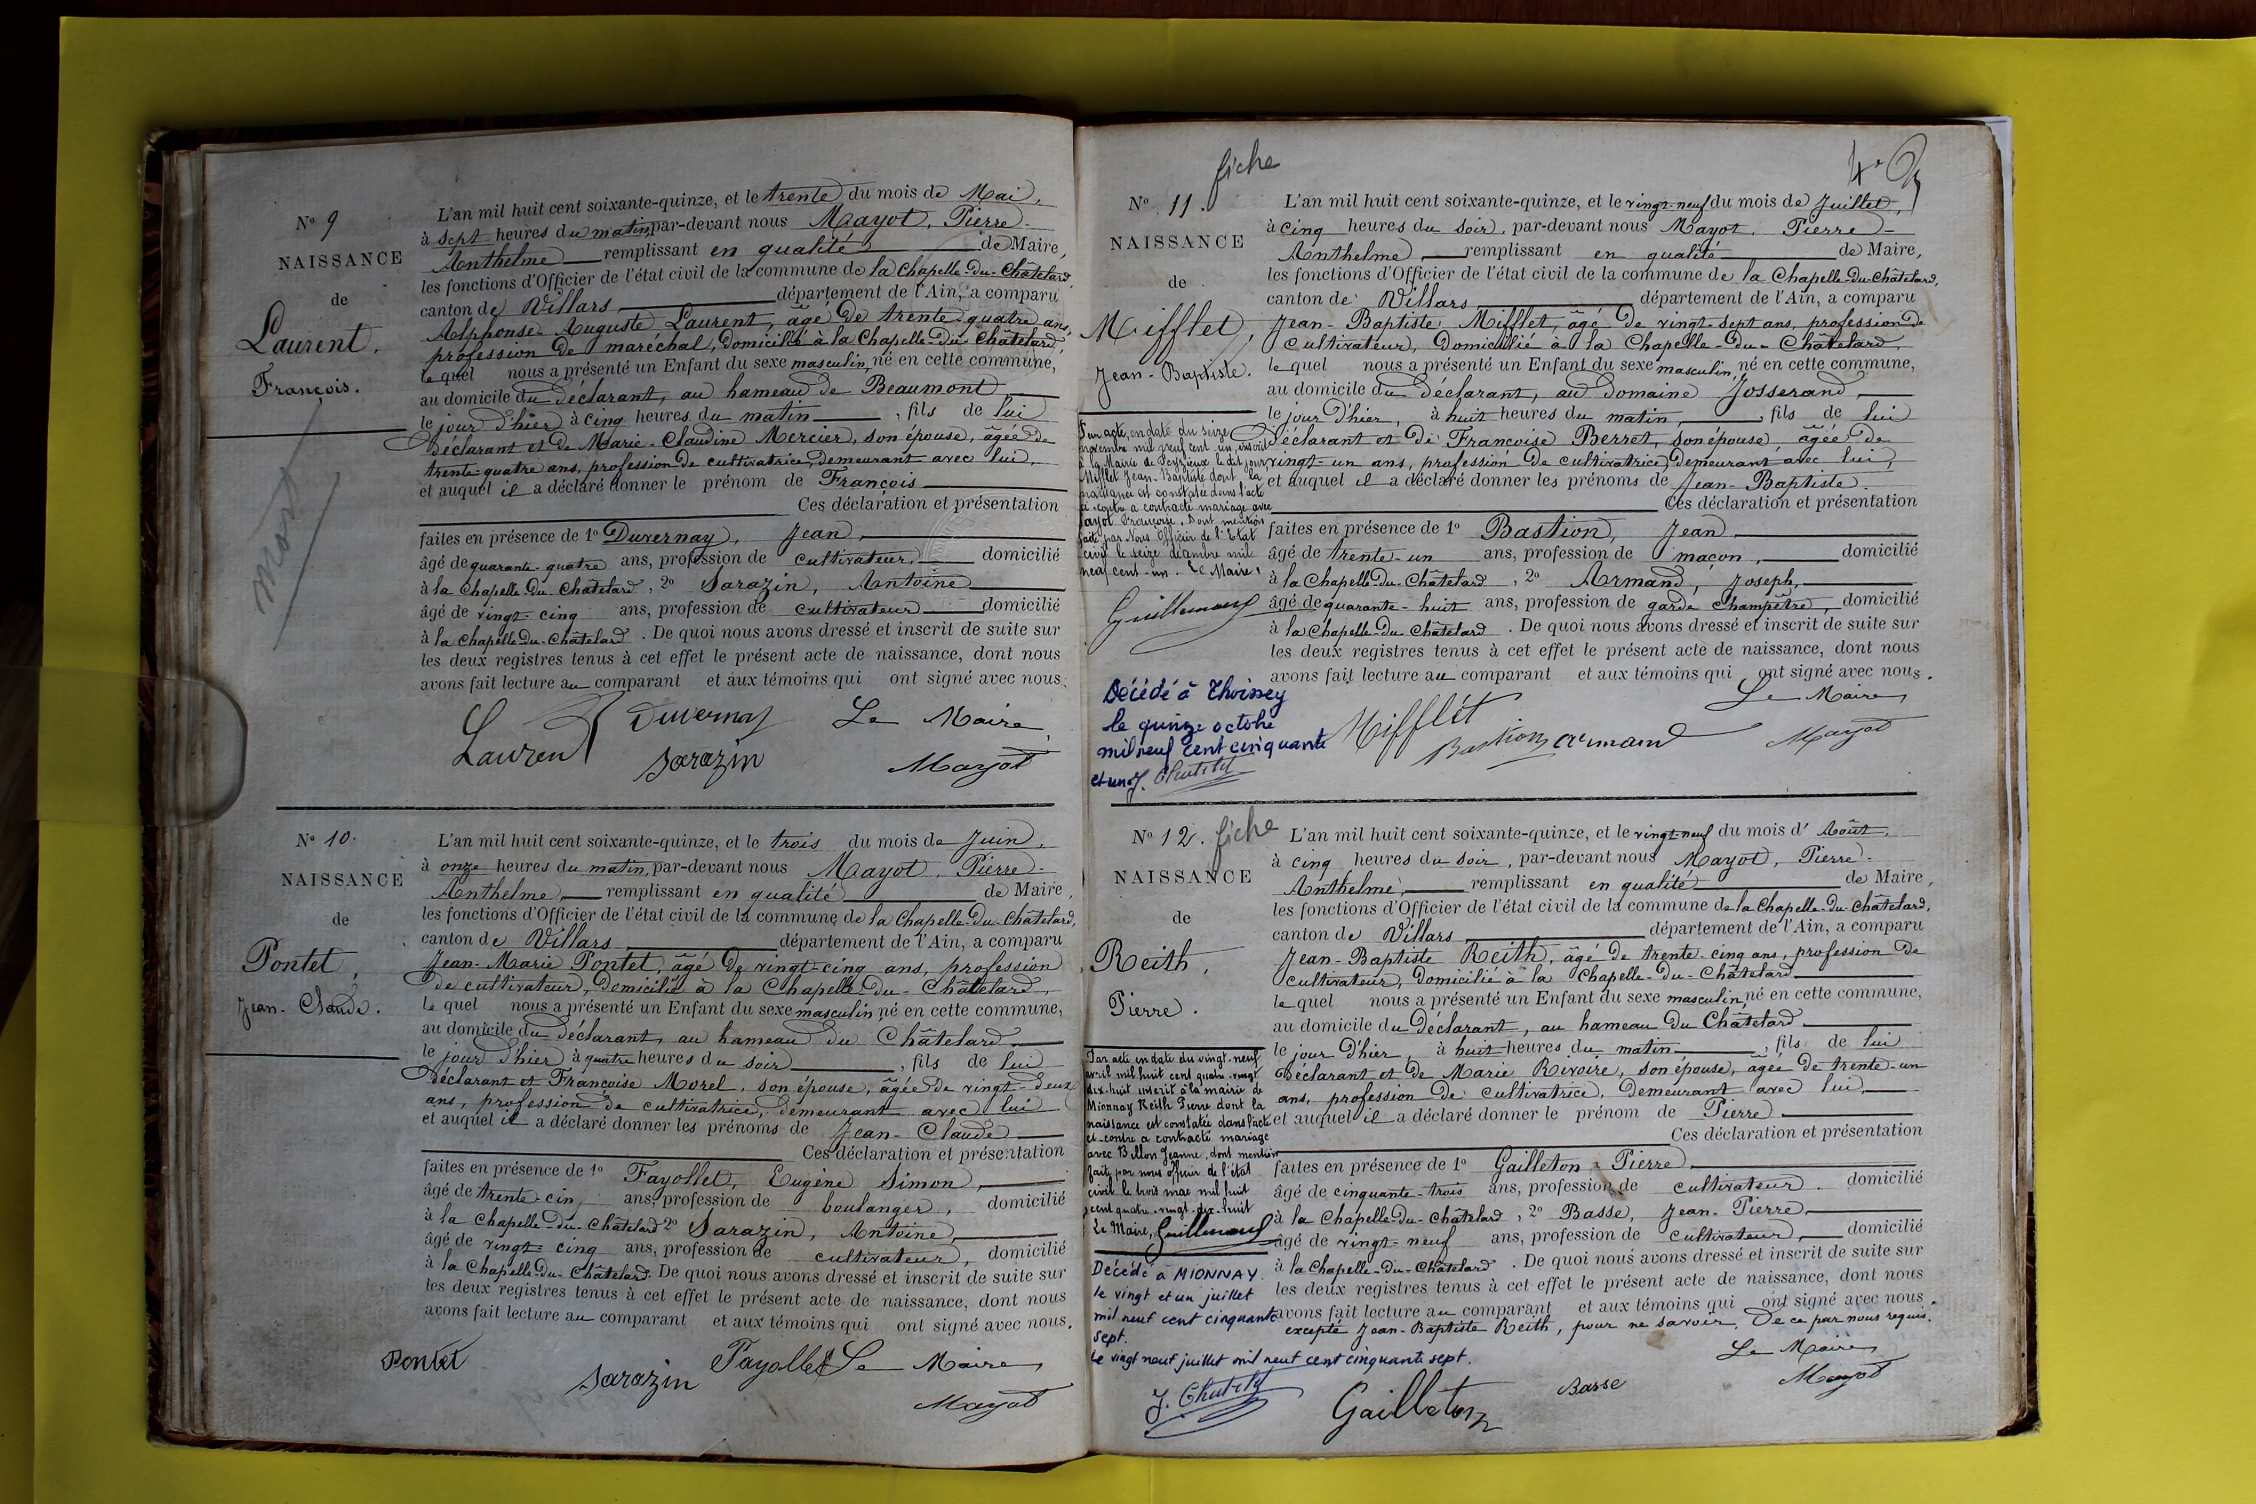 N° 9
NAISSANCE
de
Laurent.
François.
mort
L'an mil huit cent soixante-quinze, et le trente du mois de Mai,
à sept heures du matin, par-devant nous Mayot, Pierre-
Anthelme remplissant en qualité de Maire,
les fonctions d'Officier de l'état civil de la commune de la Chapelle-du-Châtelard,
canton de Villars département de l'Ain, a comparu
Alphonse Auguste Laurent, âgé de trente quatre ans,
profession de maréchal, domicilié à la Chapelle-du-Châtelard,
le quel nous a présenté un Enfant du sexe masculin, né en cette commune,
au domicile du déclarant, au hameau de Beaumont
le jour d'hier à cinq heures du matin, fils de lui
déclarant et de Marie-Claudine Mercier, son épouse, âgée de
trente-quatre ans, profession de cultivatrice, demeurant avec lui,
et auquel il a déclaré donner le prénom de François
Ces déclaration et présentation
faites en présence de 1° Duvernay, Jean,
âgé de quarante-quatre ans, profession de cultivateur, domicilié
à la Chapelle-du-Châtelard, 2° Sarazin, Antoine
âgé de vingt-cinq ans, profession de cultivateur domicilié
à la Chapelle-du-Châtelard. De quoi nous avons dressé et inscrit de suite sur
les deux registres tenus à cet effet le présent acte de naissance, dont nous
avons fait lecture au comparant et aux témoins qui ont signé avec nous.
Laurent Duvernay Le Maire,
Sarazin Mayot
N° 10.
NAISSANCE
de
Pontet,
Jean-Claude.
L'an mil huit cent soixante-quinze, et le trois du mois de Juin,
à onze heures du matin, par-devant nous Mayot, Pierre-
Anthelme, remplissant en qualité de Maire,
les fonctions d'Officier de l'état civil de la commune de la Chapelle-du-Châtelard,
canton de Villars département de l'Ain, a comparu
Jean-Marie Pontet, âgé de vingt-cinq ans, profession
de cultivateur, domicilié à la Chapelle-du-Châtelard,
le quel nous a présenté un Enfant du sexe masculin, né en cette commune,
au domicile du déclarant, au hameau du Châtelard
le jour d'hier à quatre heures du soir, fils de lui
déclarant et Françoise Morel, son épouse, âgée de vingt-deux
ans, profession de cultivatrice, demeurant avec lui
et auquel il a déclaré donner les prénoms de Jean-Claude
Ces déclaration et présentation
faites en présence de 1° Fayollet, Eugène Simon,
âgé de trente-cinq ans, profession de boulanger, domicilié
à la Chapelle-du-Châtelard 2° Sarazin, Antoine,
âgé de vingt-cinq ans, profession de cultivateur, domicilié
à la Chapelle-du-Châtelard. De quoi nous avons dressé et inscrit de suite sur
les deux registres tenus à cet effet le présent acte de naissance, dont nous
avons fait lecture au comparant et aux témoins qui ont signé avec nous.
Pontet Sarazin Fayollet Le Maire,
Mayot
fiche
4e
N° 11.
NAISSANCE
de
Mifflet,
Jean-Baptiste.
L'an mil huit cent soixante-quinze, et le vingt-neuf du mois de Juillet,
à cinq heures du soir, par-devant nous Mayot, Pierre-
Anthelme, remplissant en qualité de Maire,
les fonctions d'Officier de l'état civil de la commune de la Chapelle-du-Châtelard,
canton de Villars département de l'Ain, a comparu
Jean-Baptiste Mifflet, âgé de vingt-sept ans, profession de
cultivateur, domicilié à la Chapelle-du-Châtelard
le quel nous a présenté un Enfant du sexe masculin, né en cette commune,
au domicile du déclarant, au domaine Josserand,
le jour d'hier, à huit heures du matin, fils de lui
déclarant et de Françoise Berret, son épouse, âgée de
vingt-un ans, profession de cultivatrice, demeurant avec lui,
et auquel il a déclaré donner les prénoms de Jean-Baptiste.
Ces déclaration et présentation
faites en présence de 1° Bastion, Jean
âgé de trente-un ans, profession de maçon, domicilié
à la Chapelle-du-Châtelard, 2° Armand, Joseph,
âgé de quarante-huit ans, profession de garde champêtre, domicilié
à la Chapelle-du-Châtelard. De quoi nous avons dressé et inscrit de suite sur
les deux registres tenus à cet effet le présent acte de naissance, dont nous
avons fait lecture au comparant et aux témoins qui ont signé avec nous.
Le Maire,
Mifflet Bastion Armand Mayot
acte, en date du seize
novembre mil neuf cent un, inscrit
à la Mairie de le dit jour
Mifflet Jean-Baptiste dont la
naissance est constatée dans l'acte
ci-contre a contracté mariage avec
Françoise. Dont mention
faite par Nous Officier de l'Etat
civil le seize décembre mil
neuf cent-un. Le Maire,
Guillemaud
Décédé à Thoissey
le quinze octobre
mil neuf cent cinquante
et un
N° 12. fiche
NAISSANCE
de
Reith,
Pierre.
L'an mil huit cent soixante-quinze, et le vingt-neuf du mois d'Août,
à cinq heures du soir, par-devant nous Mayot, Pierre-
Anthelme, remplissant en qualité de Maire,
les fonctions d'Officier de l'état civil de la commune de la Chapelle-du-Châtelard,
canton de Villars département de l'Ain, a comparu
Jean-Baptiste Reith, âgé de trente-cinq ans, profession de
cultivateur, domicilié à la Chapelle-du-Châtelard
le quel nous a présenté un Enfant du sexe masculin, né en cette commune,
au domicile du déclarant, au hameau du Châtelard
le jour d'hier, à huit heures du matin, fils de lui
déclarant et de Marie Rivoire, son épouse, âgée de trente-un
ans, profession de cultivatrice, demeurant avec lui,
et auquel il a déclaré donner le prénom de Pierre
Ces déclaration et présentation
faites en présence de 1° Gailleton Pierre
âgé de cinquante-trois ans, profession de cultivateur. domicilié
à la Chapelle-du-Châtelard, 2° Basse, Jean-Pierre
âgé de vingt-neuf ans, profession de cultivateur, domicilié
à la Chapelle-du-Châtelard. De quoi nous avons dressé et inscrit de suite sur
les deux registres tenus à cet effet le présent acte de naissance, dont nous
avons fait lecture au comparant et aux témoins qui ont signé avec nous.
excepté Jean-Baptiste Reith, pour ne savoir. De ce par nous requis.
Le Maire
Gailleton Basse Mayot
Par acte en date du vingt-neuf
avril mil huit cent quatre-vingt
dix-huit inscrit à la mairie de
Mionnay Reith Pierre dont la
naissance est constatée dans l'acte
ci-contre a contracté mariage
avec Billon Jeanne, dont mention
faite par nous officier de l'état
civil le trois mai mil huit
cent quatre-vingt-dix-huit
Le Maire, Guillemaud
Décédé à MIONNAY.
le vingt et un juillet
mil neuf cent cinquante
sept.
Le vingt neuf juillet mil neuf cent cinquante sept.